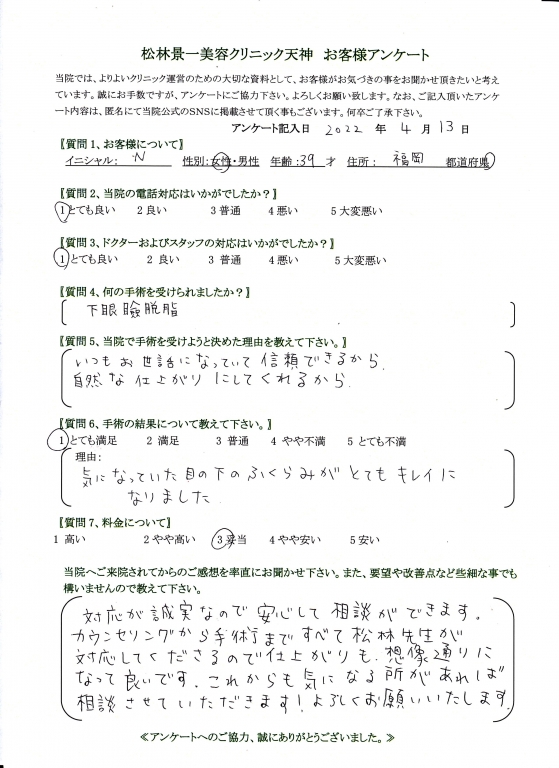 松林景一美容クリニック天神　お客様アンケート
当院では、よりよいクリニック運営のための大切な資料として、お客様がお気づきの事をお聞かせ頂きたいと考え
ています。誠にお手数ですが、アンケートにご協力下さい。よろしくお願い致します。なお、ご記入頂いたアンケ
ート内容は、匿名にて当院公式のSNSに掲載させて頂く事もございます。何卒ご了承下さい。
アンケート記入日　2022　年　4　月　13　日
【質問1、お客様について】
イニシャル：　N　性別：女性・男性　年齢：39　才　住所：　福岡　都道府県
【質問2、当院の電話対応はいかがでしたか？】
1 とても良い　2 良い　3 普通　4 悪い　5 大変悪い
【質問3、ドクターおよびスタッフの対応はいかがでしたか？】
1 とても良い　2 良い　3 普通　4 悪い　5 大変悪い
【質問4、何の手術を受けられましたか？】
下眼瞼脱脂
【質問5、当院で手術を受けようと決めた理由を教えて下さい。】
いつもお世話になっていて信頼できるから.
自然な仕上がりにしてくれるから.
【質問6、手術の結果について教えて下さい。】
1 とても満足　2 満足　3 普通　4 やや不満　5 とても不満
理由：
気になっていた目の下のふくらみがとてもキレイに
なりました
【質問7、料金について】
1 高い　2 やや高い　3 妥当　4 やや安い　5 安い
当院へご来院されてからのご感想を率直にお聞かせ下さい。また、要望や改善点など些細な事でも
構いませんので教えて下さい。
対応が誠実なので安心して相談ができます。
カウンセリングから手術まですべて松林先生が
対応してくださるので仕上がりも想像通りに
なって良いです。これからも気になる所があれば
相談させていただきます！よろしくお願いいたします.
≪アンケートへのご協力、誠にありがとうございました。≫